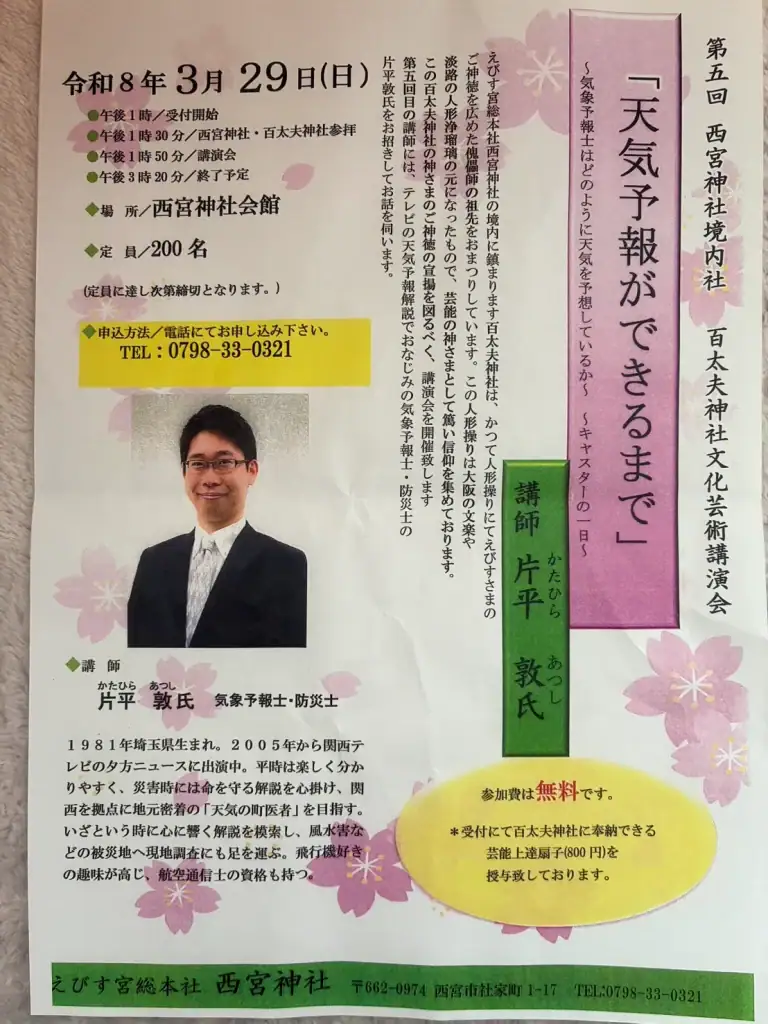 第五回 西宮神社境内社 百太夫神社文化芸術講演会
「天気予報ができるまで」
～気象予報士はどのように天気を予想しているか～ ～キャスターの一日～
講師 片平 敦氏
かたひら あつし
えびす宮総本社西宮神社の境内に鎮まります百太夫神社は、かつて人形操りにてえびすさまの
ご神徳を広めた傀儡師の祖先をおまつりしています。この人形操りは大阪の文楽や
淡路の人形浄瑠璃の元になったもので、芸能の神さまとして篤い信仰を集めております。
この百太夫神社の神さまのご神徳の宣揚を図るべく、講演会を開催致します
第五回目の講師には、テレビの天気予報解説でおなじみの気象予報士・防災士の
片平敦氏をお招きしてお話を伺います。
令和8年 3月 29日(日)
●午後1時／受付開始
●午後1時30分／西宮神社・百太夫神社参拝
●午後1時50分／講演会
●午後3時20分／終了予定
◆場 所／西宮神社会館
◆定 員／200名
(定員に達し次第締切となります。)
◆申込方法／電話にてお申し込み下さい。
TEL：0798-33-0321
◆講 師
かたひら あつし
片平 敦氏 気象予報士・防災士
1981年埼玉県生まれ。2005年から関西テ
レビの夕方ニュースに出演中。平時は楽しく分か
りやすく、災害時には命を守る解説を心掛け、関
西を拠点に地元密着の「天気の町医者」を目指す。
いざという時に心に響く解説を模索し、風水害な
どの被災地へ現地調査にも足を運ぶ。飛行機好き
の趣味が高じ、航空通信士の資格も持つ。
参加費は無料です。
＊受付にて百太夫神社に奉納できる
芸能上達扇子(800円)を
授与致しております。
えびす宮総本社 西宮神社 〒662-0974 西宮市社家町1-17 TEL:0798-33-0321